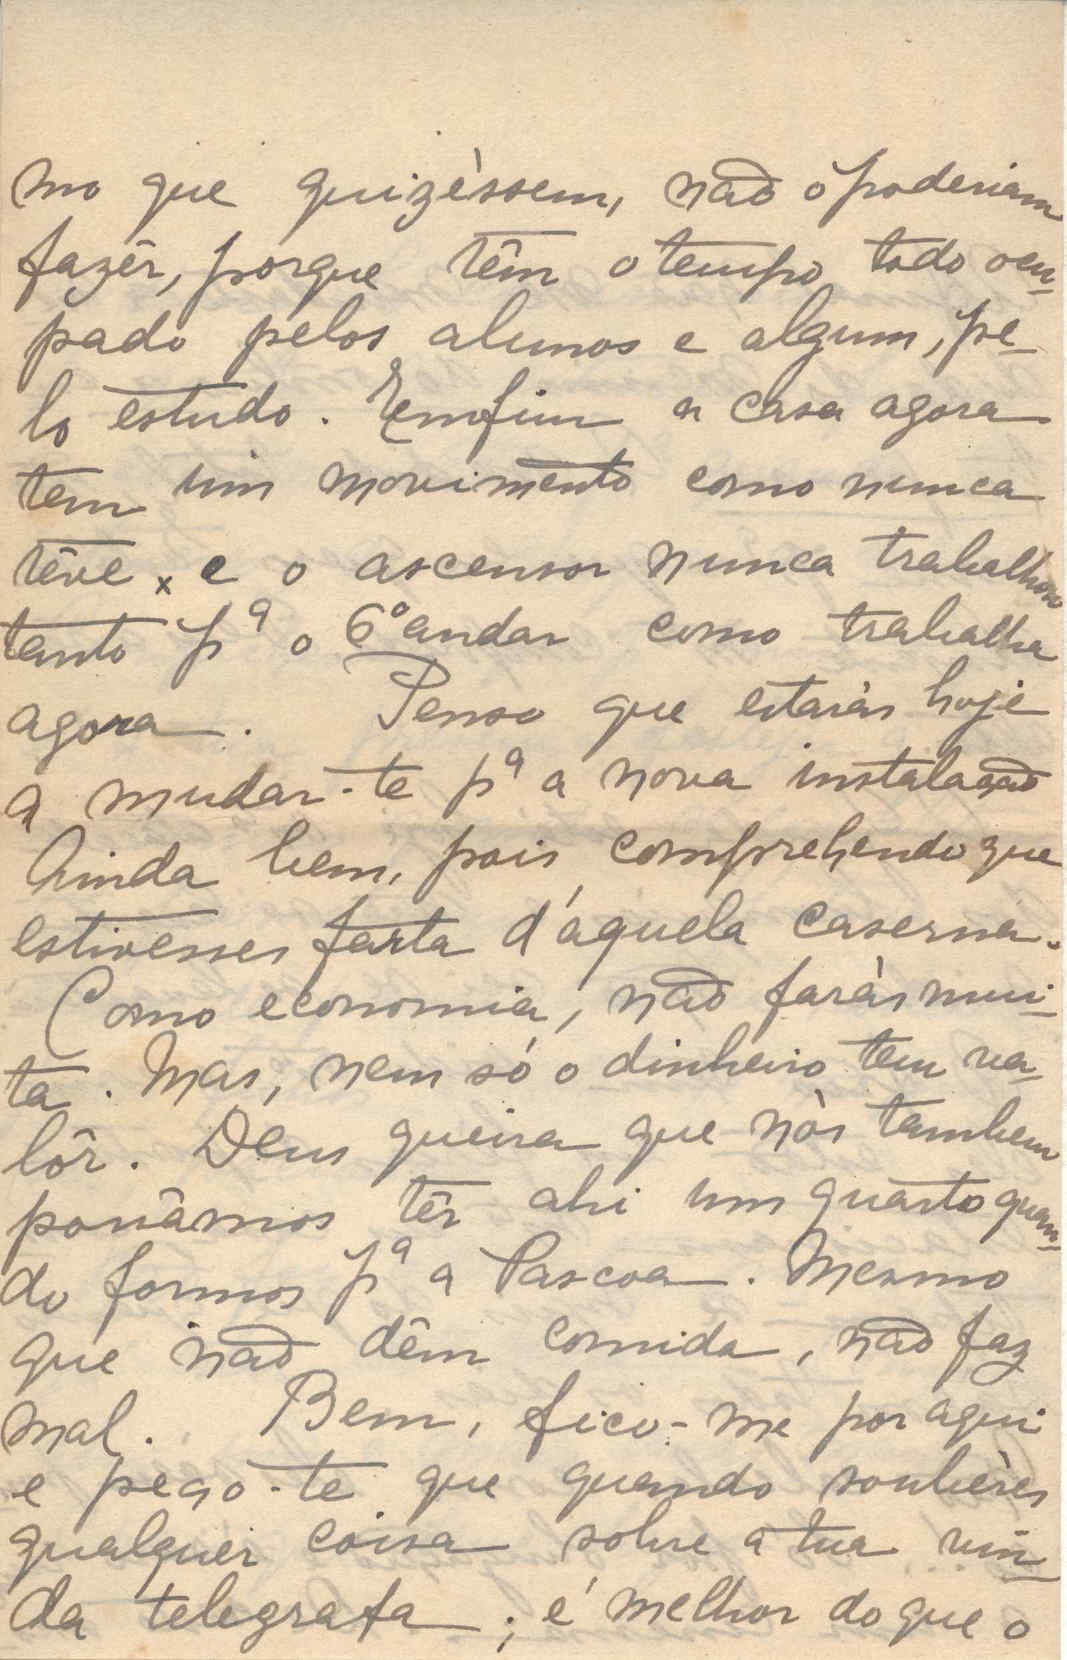 mo que quizèssem, não o poderiam
fazêr, porque têm o tempo todo ocu-
pado pelos alunos e algum, pe-
lo estudo. Emfim a casa agora
tem um movimento como nunca
têve x e o ascensor nunca trabalhou
tanto pª o 6º andar como trabalha
agora. Penso que estaràs hoje
a mudar-te pª a nova instalação
Ainda bem, pois comprehendo que
estivesses farta d'aquela caserna.
Como economia, não faràs mui-
ta. Mas, nem só o dinheiro tem va-
lôr. Deus queira que nòs tambem
possâmos têr ahi um quarto quan-
do formos pª a Pascoa. Mesmo
que não dêm comida, não faz
mal. Bem, fico-me por aqui
e peço-te que quando soubères
qualquer coisa sobre a tua vin-
da telegrafa; é melhor do que o